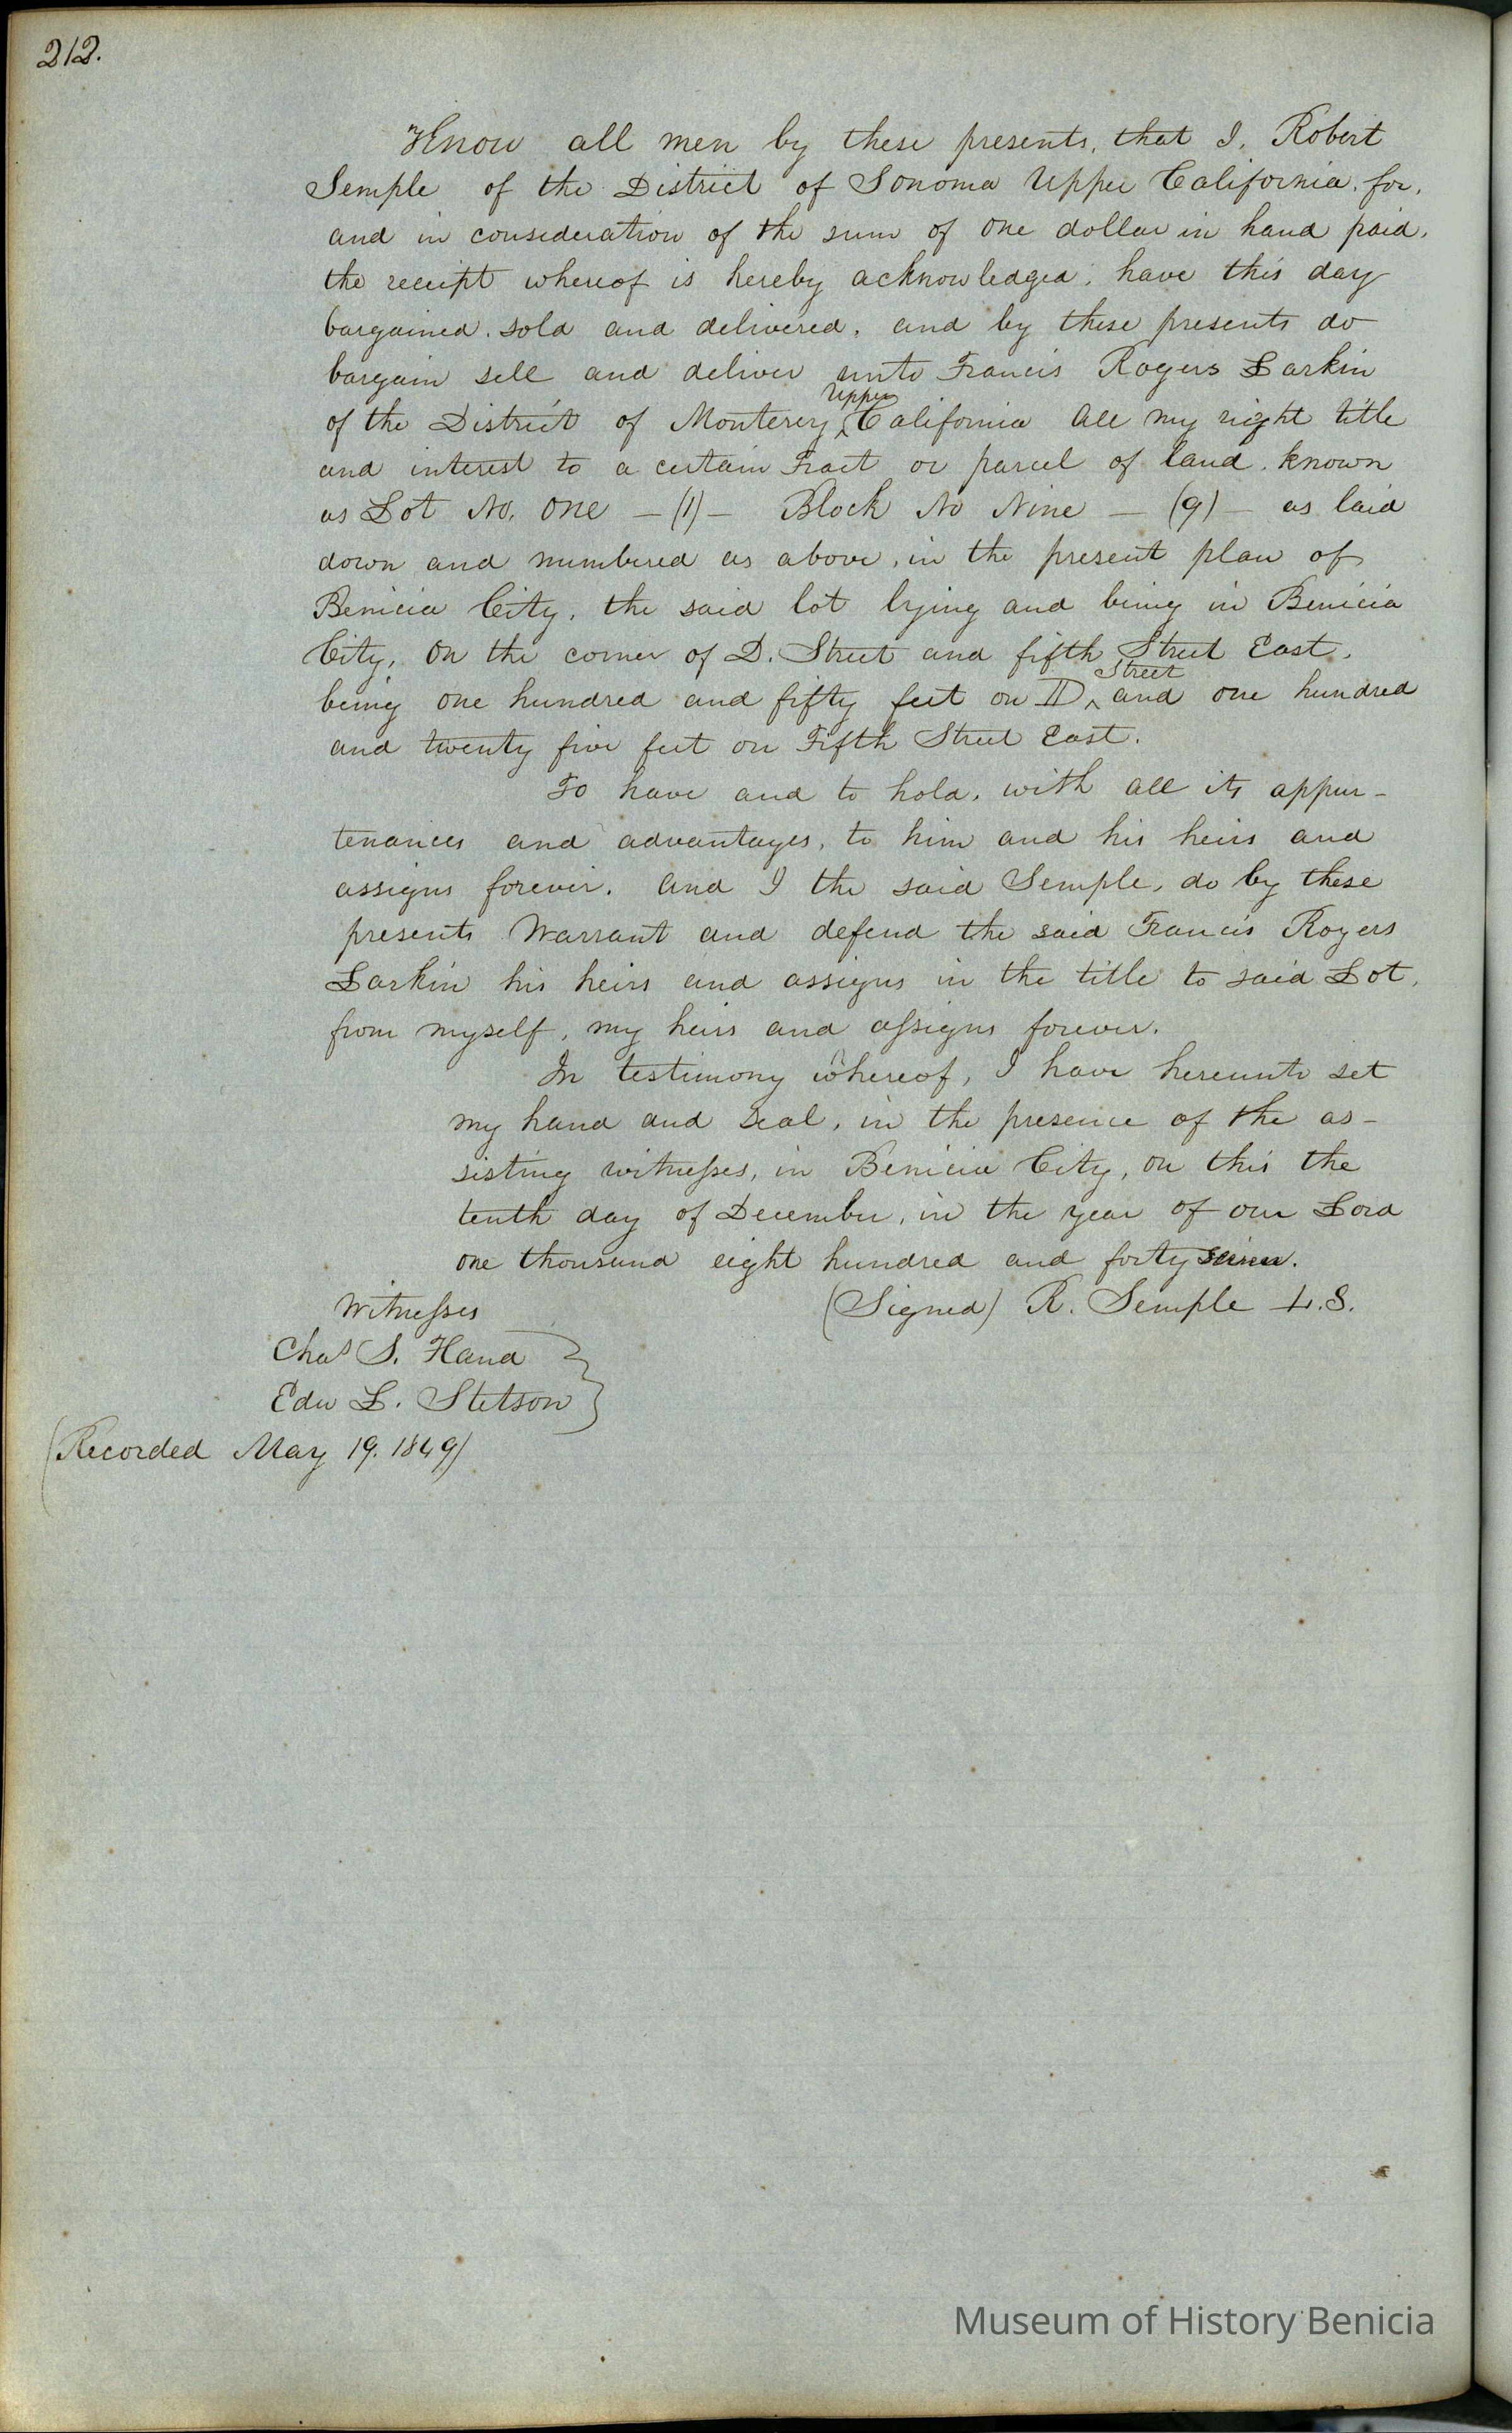 212.
Know all men by these presents, that I, Robert
Semple of the District of Sonoma Upper California, for,
and in consideration of the sum of one dollar in hand paid,
the receipt whereof is hereby acknowledged, have this day
bargained, sold and delivered, and by these presents do
bargain sell and deliver unto Francis Rogers Larkin
of the District of Monterey ^Upper California all my right title
and interest to a certain Tract or parcel of land, known
as Lot No. One – (1) – Block No Nine – (9) – as laid
down and numbered as above, in the present plan of
Benicia City, the said lot lying and being in Benicia
City, on the corner of D. Street and fifth Street East,
being one hundred and fifty feet on D ^Street and one hundred
and twenty five feet on Fifth Street East.
To have and to hold, with all its appur-
tenances and advantages, to him and his heirs and
assigns forever. And I the said Semple, do by these
presents Warrant and defend the said Francis Rogers
Larkin his heirs and assigns in the title to said Lot,
from myself, my heirs and assigns forever.
In testimony whereof, I have hereunto set
my hand and seal, in the presence of the as-
sisting witnesses, in Benicia City, on this the
tenth day of December, in the year of our Lord
one thousand eight hundred and forty seven.
Witnesses (Signed) R. Semple L.S.
Chas S. Hand
Edw L. Stetson
(Recorded May 19. 1849)
Museum of History Benicia